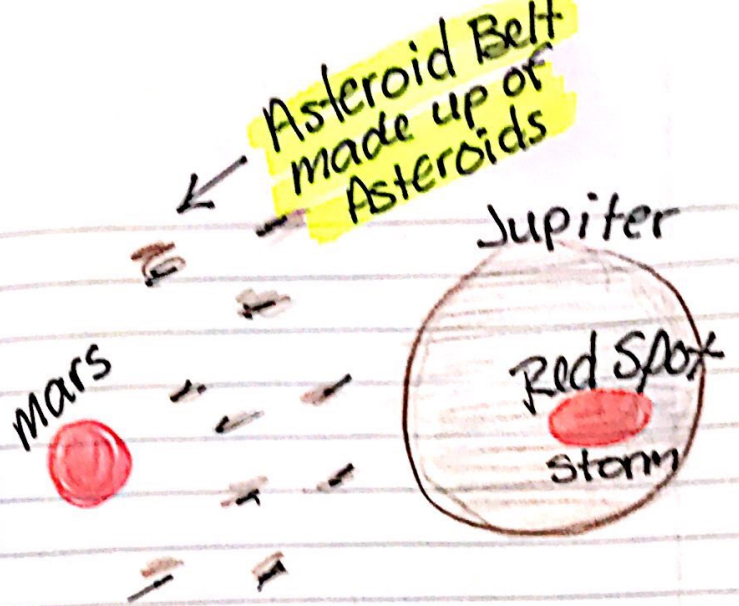 Asteroid Belt
made up of
Asteroids
Jupiter
Mars
Red Spot
storm